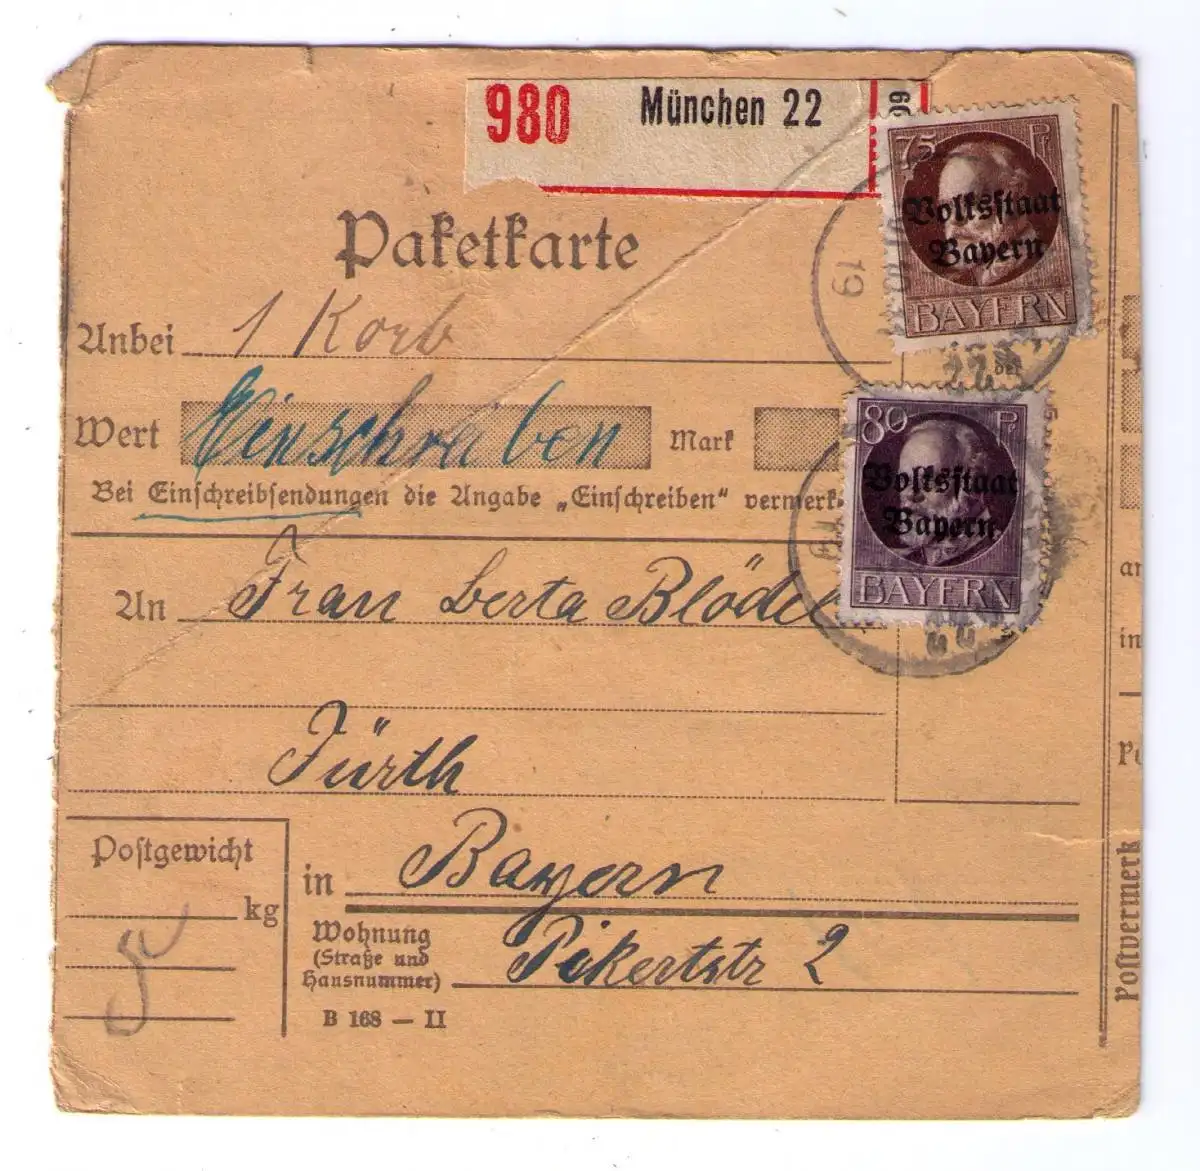 980 München 22
75 Pf
Volksstaat
Bayern
BAYERN
Paketkarte
Anbei 1 Korb
Wert Einschreiben Mark
80 Pf
Volksstaat
Bayern
BAYERN
Bei Einschreibsendungen die Angabe „Einschreiben“ vermerk
An Frau Berta Blödel
Fürth
Postgewicht
kg
in Bayern
Wohnung
(Straße und
Hausnummer)
Pickertstr 2
B 168 — II
Postvermerk
19
22